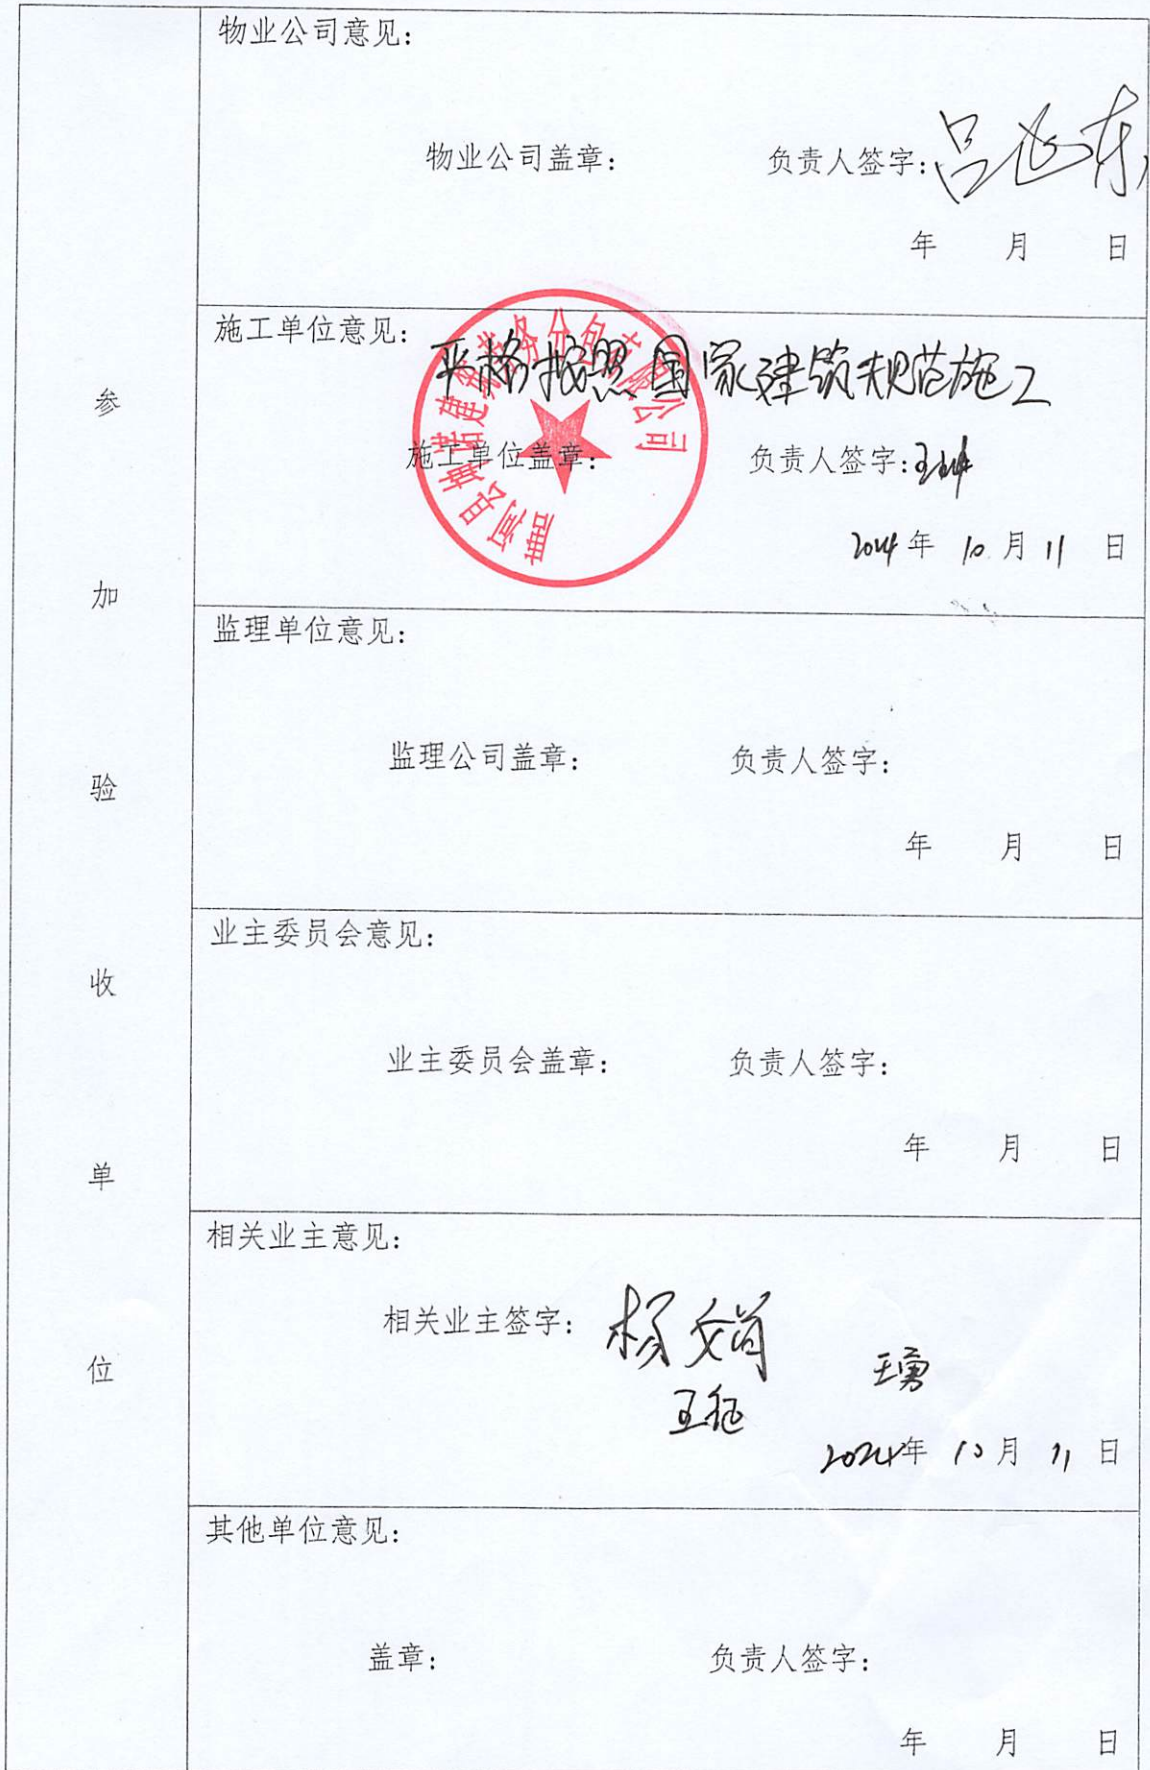 参加验收单位
物业公司意见：
物业公司盖章： 负责人签字：吕延东
年 月 日
施工单位意见：严格按照国家建筑规范施工
施工单位盖章： 负责人签字：王
劳务分包有限公司
唐河县 建筑
2024年 10月 11 日
监理单位意见：
监理公司盖章： 负责人签字：
年 月 日
业主委员会意见：
业主委员会盖章： 负责人签字：
年 月 日
相关业主意见：
相关业主签字：杨文娟
王征 王勇
2024年 10月 11 日
其他单位意见：
盖章： 负责人签字：
年 月 日